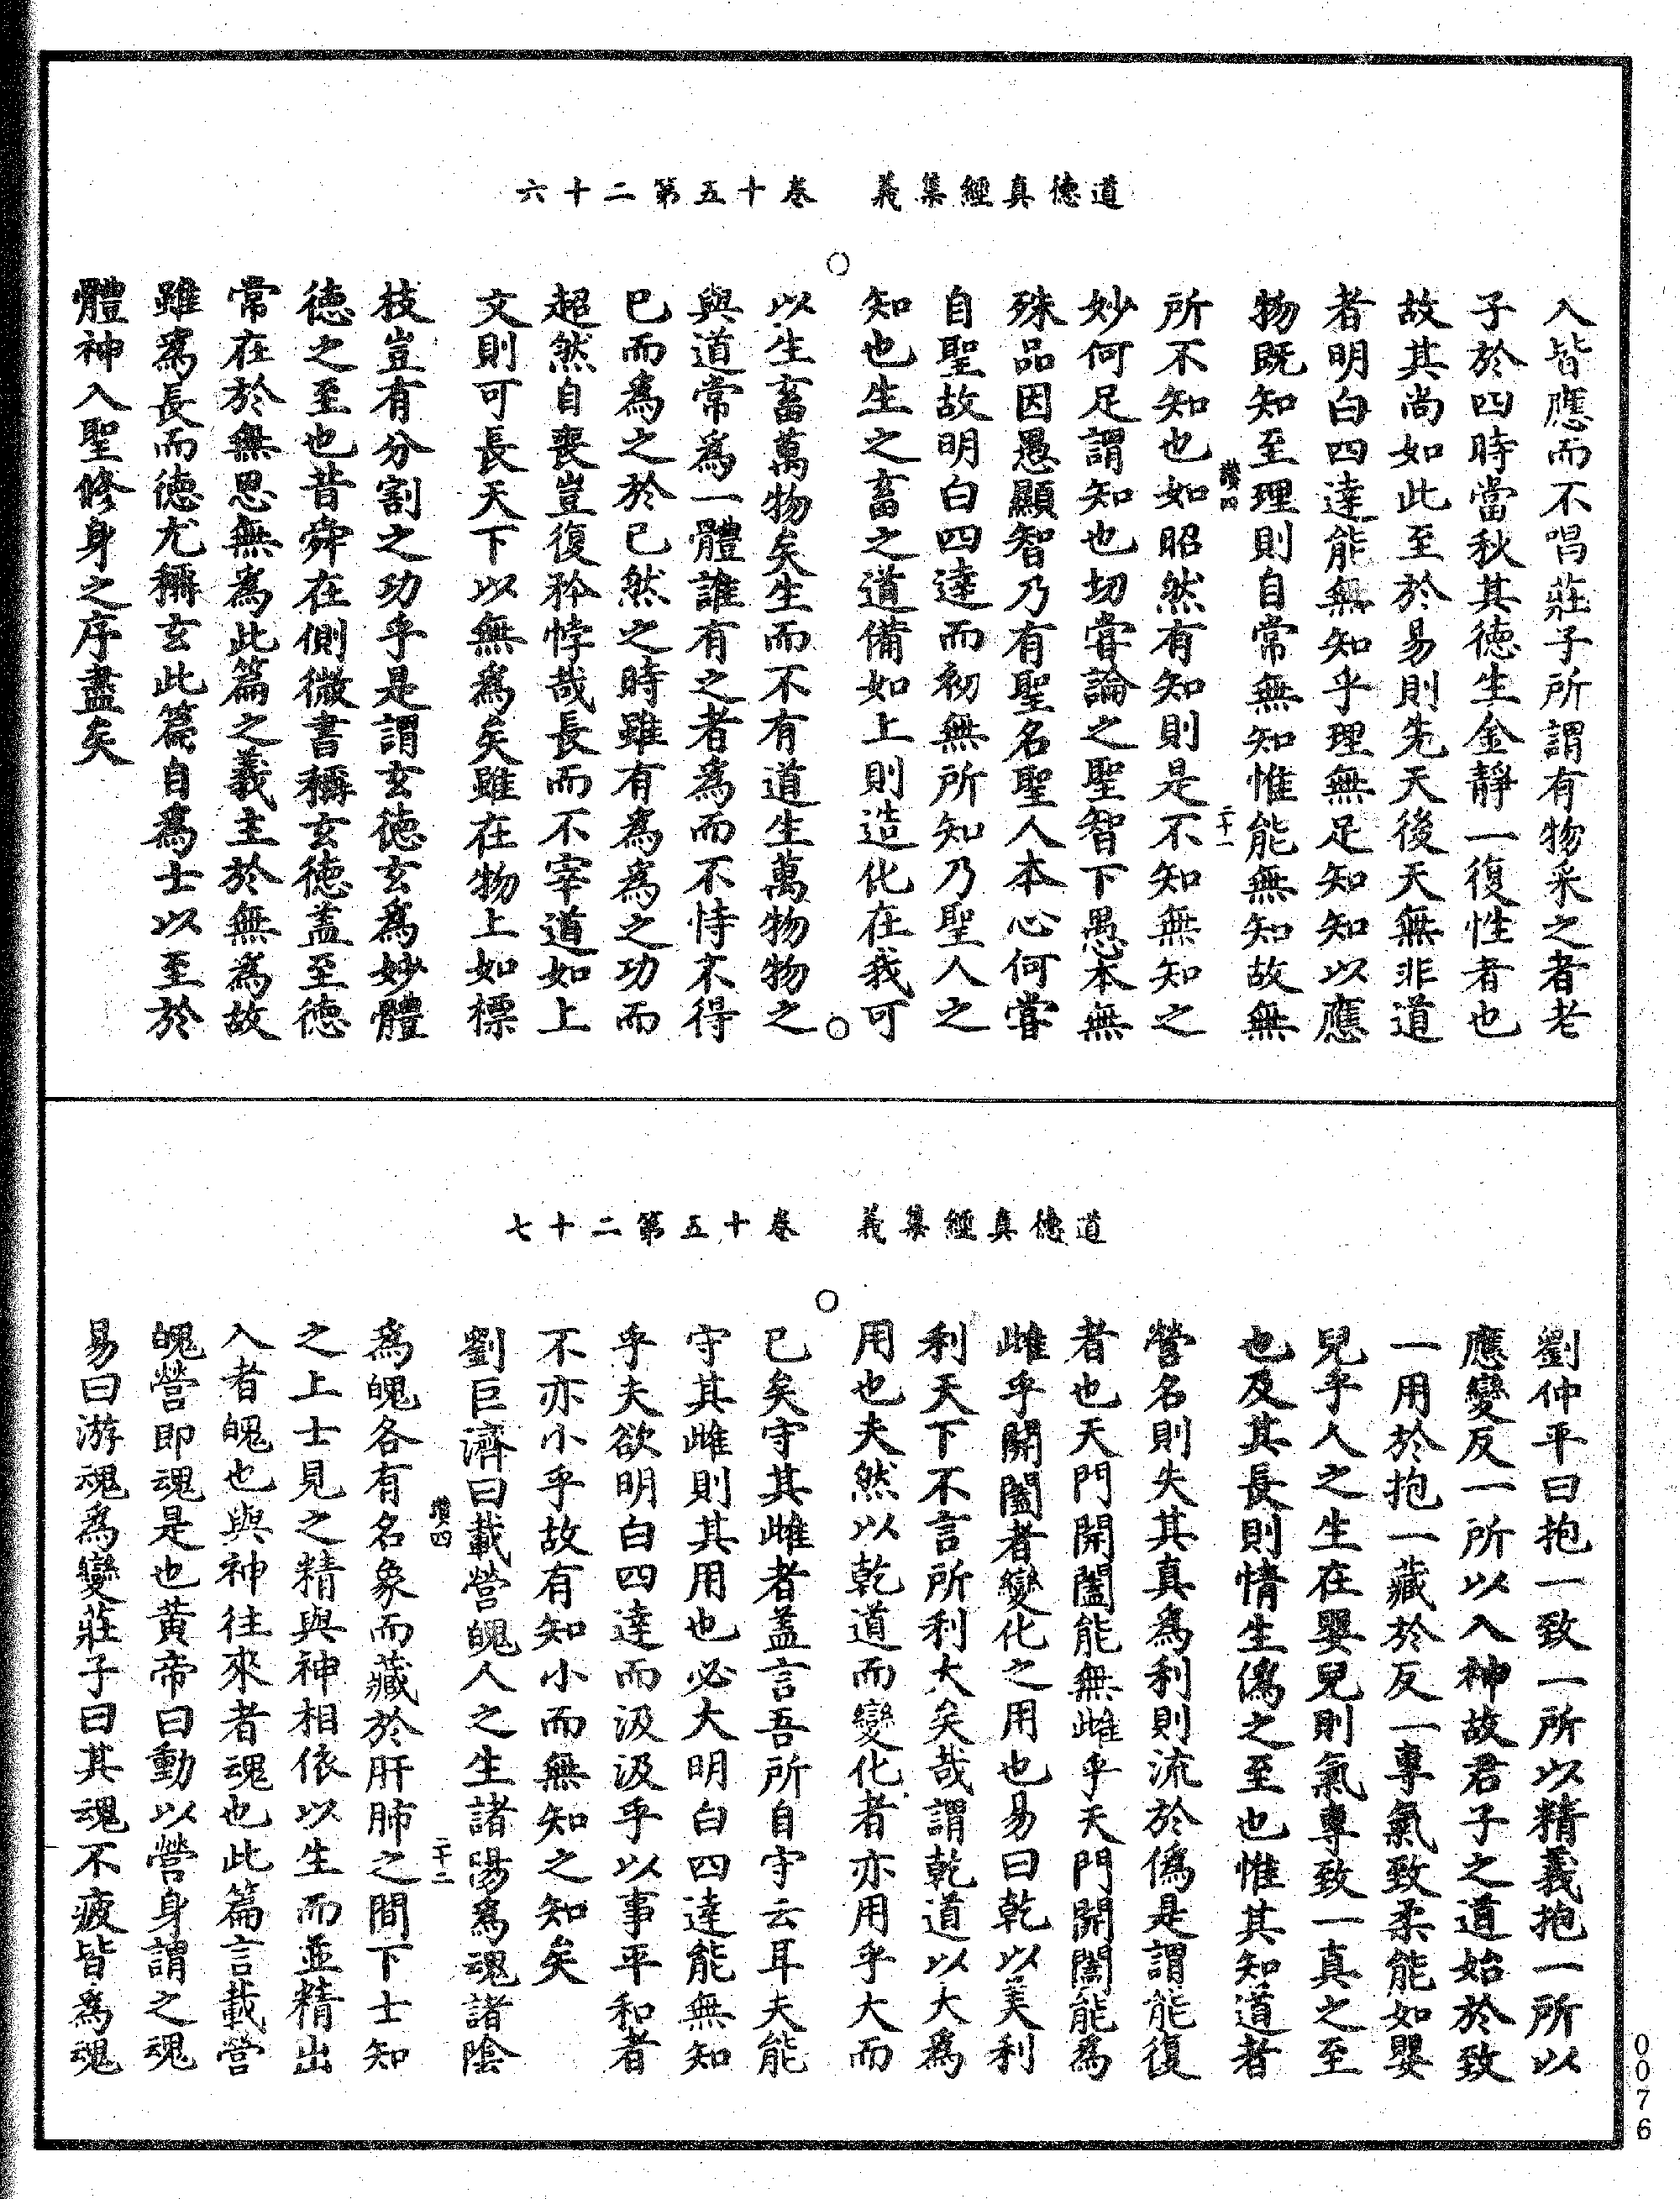 道德真經集義　卷十五第二十六
入皆應而不唱莊子所謂有物采之者老
子於四時當秋其德生金靜一復性者也
故其尚如此至於易則先天後天無非道
者明白四達能無知乎理無足知知以應
物既知至理則自常無知惟能無知故無
讚四　二十一
所不知也如昭然有知則是不知無知之
妙何足謂知也切甞論之聖智下愚本無
殊品因愚顯智乃有聖名聖人本心何甞
自聖故明白四達而初無所知乃聖人之
知也生之畜之道備如上則造化在我可
以生畜萬物矣生而不有道生萬物物之
與道常為一體誰有之者為而不恃不得
已而為之於已然之時雖有為為之功而
超然自喪豈復矜悖哉長而不宰道如上
文則可長天下以無為矣雖在物上如標
枝豈有分割之功乎是謂玄德玄為妙體
德之至也昔舜在側微書稱玄德蓋至德
常在於無思無為此篇之義主於無為故
雖為長而德尤稱玄此篇自為士以至於
體神入聖修身之序盡矣
道德真經集義　卷十五第二十七
劉仲平曰抱一致一所以精義抱一所以
應變反一所以入神故君子之道始於致
一用於抱一藏於反一專氣致柔能如嬰
兒乎人之生在嬰兒則氣專致一真之至
也及其長則情生偽之至也惟其知道者
營名則失其真為利則流於偽是謂能復
者也天門開闔能無雌乎天門開闔能為
雌乎開闔者變化之用也易曰乾以美利
利天下不言所利大矣哉謂乾道以大為
用也夫然以乾道而變化者亦用乎大而
已矣守其雌者蓋言吾所自守云耳夫能
守其雌則其用也必大明白四達能無知
乎夫欲明白四達而汲汲乎以事平和者
不亦小乎故有知小而無知之知矣
劉巨濟曰載營魄人之生諸陽為魂諸陰
讚四　二十二
為魄各有名象而藏於肝肺之間下士知
之上士見之精與神相依以生而並精出
入者魄也與神往來者魂也此篇言載營
魄營即魂是也黃帝曰動以營身謂之魂
易曰游魂為變莊子曰其魂不疲皆為魂
0076